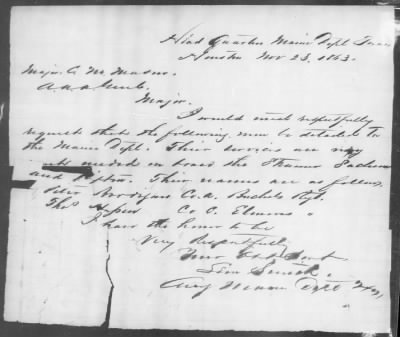 Head Quarters Marine Dept Texas
Houston Nov 23, 1863.
Major. A. M. Mason.
A. A. Genl.
Major.
I would most respectfully
request that the following men be detailed to
the Marine Dept. Their services are very
needed on board the Steamer Sachem
and Their names are as follows,
Co. A. Buchels Regt.
Thos Co C. Elmores "
I have the honor to be
Very Respectfully
Your Obt Servt
Leon Smith.
Comg Marine Dept Texas